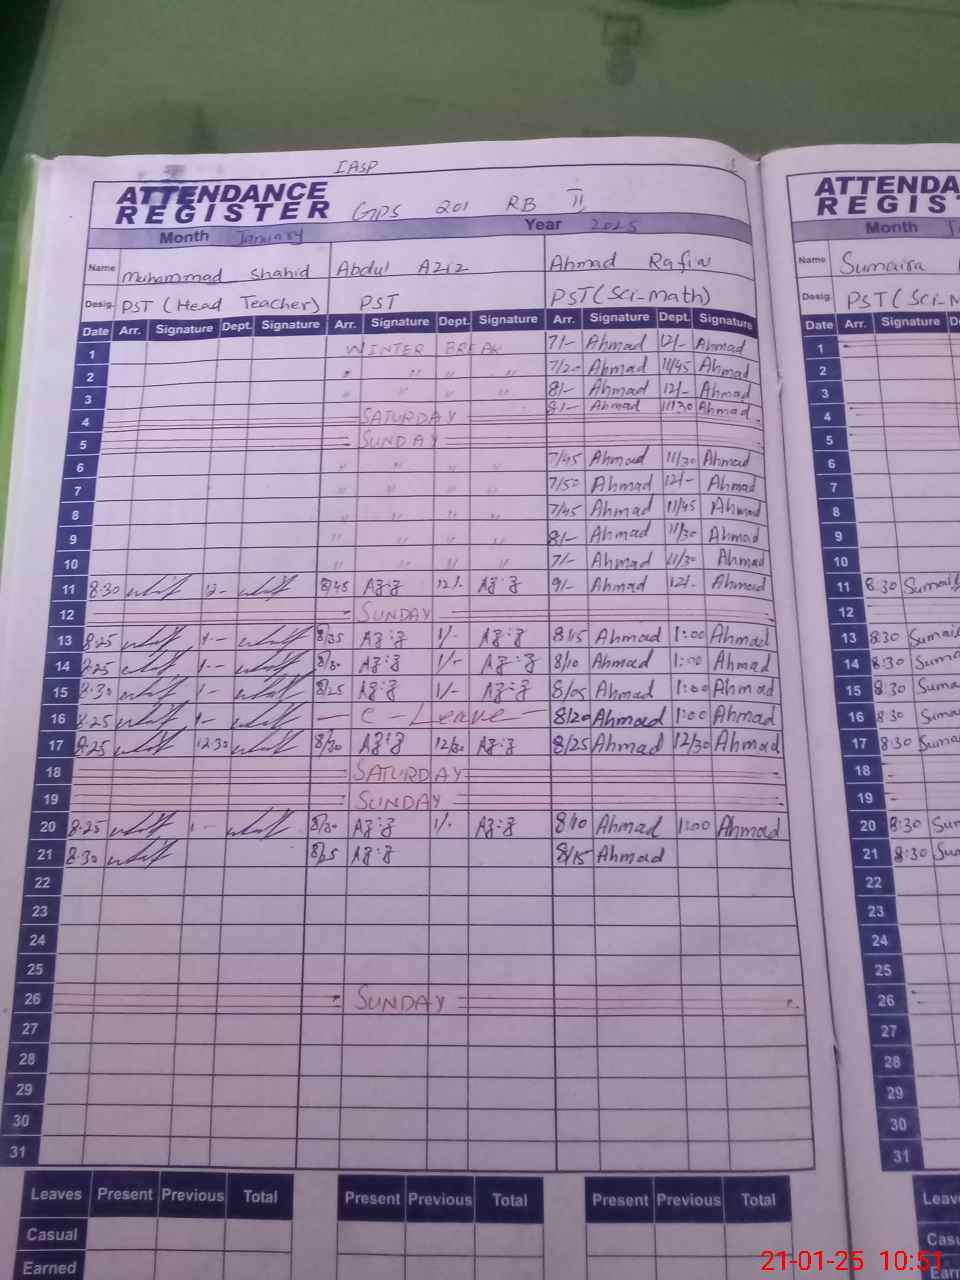 IASP
ATTENDANCE
REGISTER GPS 201 RB II
Month January Year 2025
Name Muhammad Shahid Abdul Aziz Ahmad
Desig. PST (Head Teacher) PST PST (Sci-Math)
Date Arr. Signature Dept. Signature Arr. Signature Dept. Signature Arr. Signature Dept. Signature
1 WINTER BREAK 7/- Ahmad 12/- Ahmad
2 " " " 7/20 Ahmad 11/45 Ahmad
3 " " " " 8/- Ahmad 12/- Ahmad
4 SATURDAY 8/- Ahmad 11/30 Ahmad
5 SUNDAY
6 " " " " 7/45 Ahmad 11/30 Ahmad
7 " " " " 7/50 Ahmad 12/- Ahmad
8 " " " " 7/45 Ahmad 11/45 Ahmad
9 " " " " 8/- Ahmad 11/30 Ahmad
10 " " " " 7/- Ahmad 11/30 Ahmad
11 8:30 12- 8/45 12/- 9/- Ahmad 12/- Ahmad
12 SUNDAY
13 8:25 1- 8/25 1/- 8/15 Ahmad 1:00 Ahmad
14 8:25 1- 8/30 1/- 8/10 Ahmad 1:00 Ahmad
15 8:30 1- 8/25 1/- 8/05 Ahmad 1:00 Ahmad
16 8:25 1- C-Leave 8/20 Ahmad 1:00 Ahmad
17 8:25 12:30 8/30 12/30 8/25 Ahmad 12/30 Ahmad
18 SATURDAY
19 SUNDAY
20 8:25 1- 8/30 1/- 8/10 Ahmad 1:00 Ahmad
21 8:30 8/25 8/15 Ahmad
22
23
24
25
26 SUNDAY
27
28
29
30
31
Leaves Present Previous Total Present Previous Total Present Previous Total
Casual
Earned
ATTENDA
REGIST
Month
Name Sumaira
Desig. PST (Sci-M
Date Arr. Signature D
1
2
3
4
5
6
7
8
9
10
11 8:30 Sumai
12
13 8:30 Sumai
14 8:30 Suma
15 8:30 Suma
16 8:30 Suma
17 8:30 Suma
18
19
20 8:30 Sum
21 8:30 Su
22
23
24
25
26
27
28
29
30
31
Leav
Casu
Earn
21-01-25 10:51